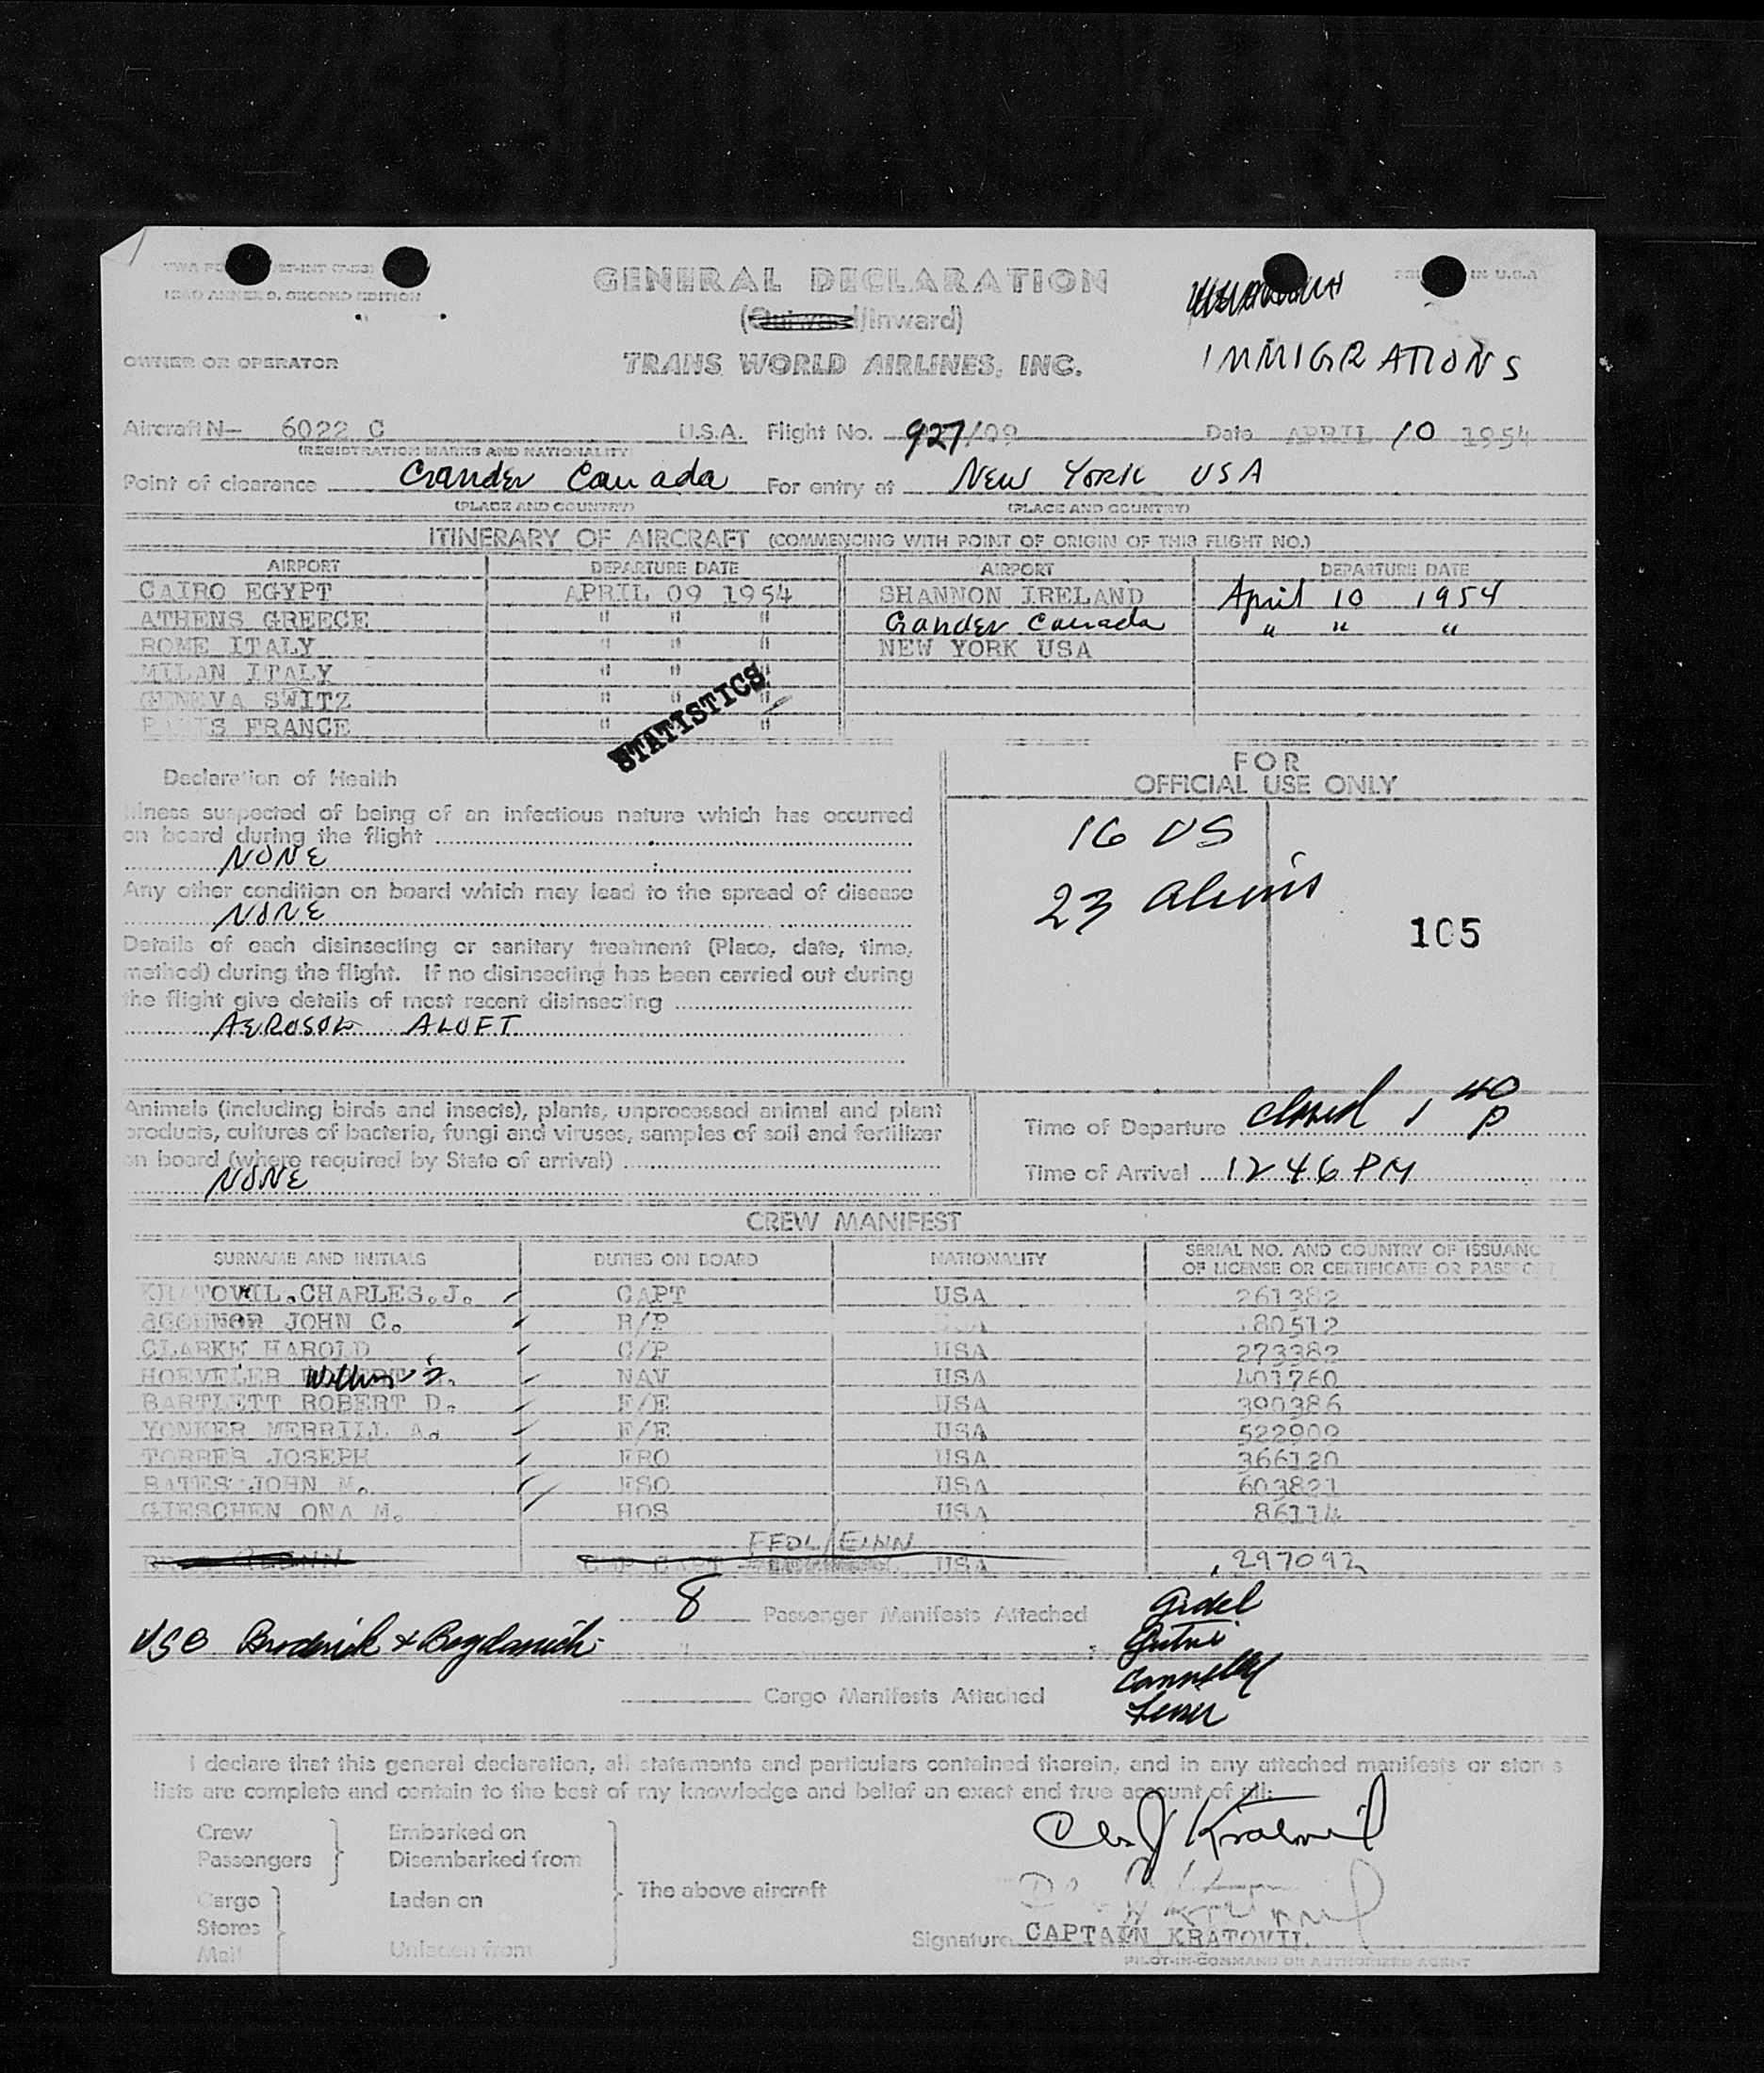 GENERAL DECLARATION
(Outward/Inward)
ICAO ANNEX 9, SECOND EDITION
IN U.S.A
IMMIGRATIONS
OWNER OR OPERATOR TRANS WORLD AIRLINES, INC.
Aircraft N— 6022 C U.S.A. Flight No. 927/09 Date APRIL 10 1954
(REGISTRATION MARKS AND NATIONALITY)
Point of clearance Gander Canada For entry at NEW YORK USA
(PLACE AND COUNTRY) (PLACE AND COUNTRY)
ITINERARY OF AIRCRAFT (COMMENCING WITH POINT OF ORIGIN OF THIS FLIGHT NO.)
AIRPORT DEPARTURE DATE AIRPORT DEPARTURE DATE
CAIRO EGYPT APRIL 09 1954 SHANNON IRELAND April 10 1954
ATHENS GREECE " " " Gander Canada " " "
ROME ITALY " " " NEW YORK USA
MILAN ITALY " " "
GENEVA SWITZ " " "
PARIS FRANCE " " "
STATISTICS
Declaration of Health
Illness suspected of being of an infectious nature which has occurred
on board during the flight
NONE
Any other condition on board which may lead to the spread of disease
NONE
Details of each disinsecting or sanitary treatment (Place, date, time,
method) during the flight. If no disinsecting has been carried out during
the flight give details of most recent disinsecting
AEROSOL ALOFT
FOR
OFFICIAL USE ONLY
16 US
23 aliens
105
Animals (including birds and insects), plants, unprocessed animal and plant
products, cultures of bacteria, fungi and viruses, samples of soil and fertilizer
on board (where required by State of arrival)
NONE
Time of Departure closed 1 40 P
Time of Arrival 12 46 PM
CREW MANIFEST
SURNAME AND INITIALS DUTIES ON BOARD NATIONALITY SERIAL NO. AND COUNTRY OF ISSUANC
OF LICENSE OR CERTIFICATE OR PASSPORT
KRATOVIL, CHARLES. J. CAPT USA 261382
JOHN C. R/P 80512
CLARKE HAROLD C/P USA 273382
HOEVELER NAV USA 401760
BARTLETT ROBERT D. F/E USA 390386
YONKER MERRILL A. F/E USA 522909
TORRES JOSEPH FRO USA 366120
BATES JOHN M. FSO USA 603821
GIESCHEN ONA M. HOS USA 86114
USA 297092
8 Passenger Manifests Attached
Gidel
Connelly
USC Broderick & Bogdanich
Cargo Manifests Attached
I declare that this general declaration, all statements and particulars contained therein, and in any attached manifests or stores
lists are complete and contain to the best of my knowledge and belief an exact and true account of all:
Crew Embarked on
Passengers Disembarked from
Cargo Laden on The above aircraft
Stores
Mail Unladen from
Chs J Kratovil
Signature CAPTAIN KRATOVIL
PILOT-IN-COMMAND OR AUTHORIZED AGENT